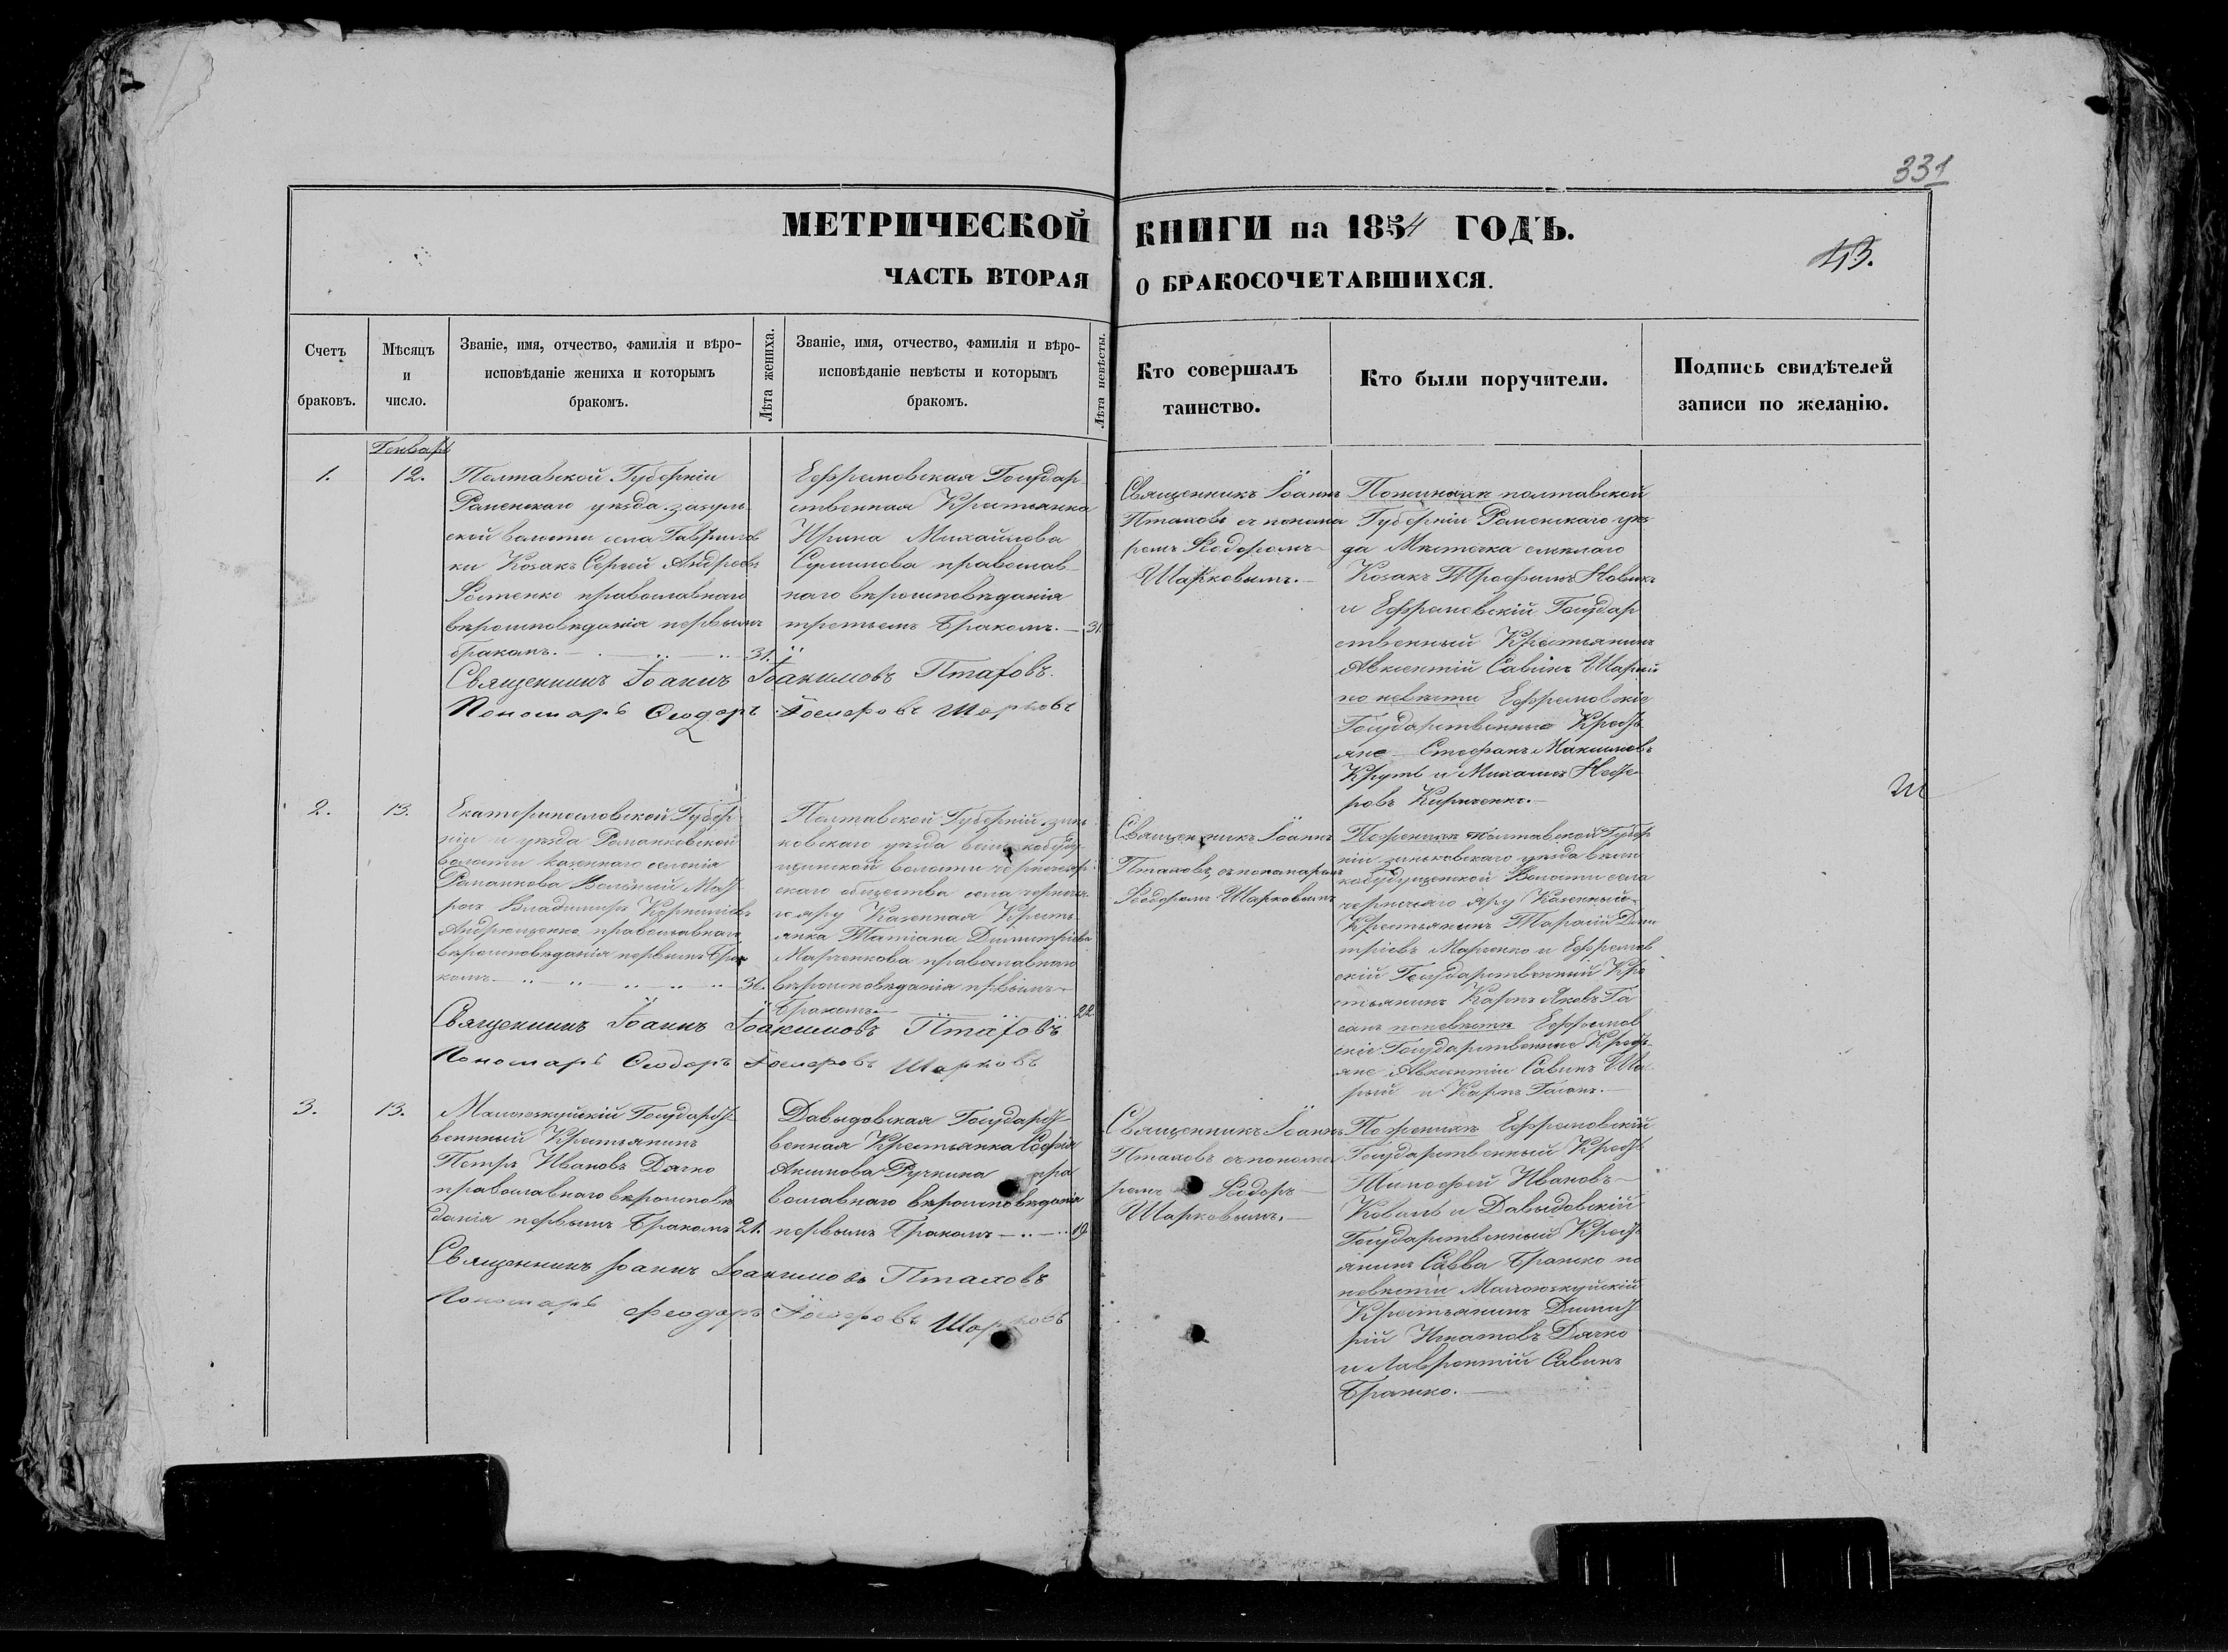 331
МЕТРИЧЕСКОЙ КНИГИ на 1854 ГОДЪ.
43.
ЧАСТЬ ВТОРАЯ О БРАКОСОЧЕТАВШИХСЯ.
Счетъ браковъ.
Мѣсяцъ и число.
Званіе, имя, отчество, фамилія и вѣро-
исповѣданіе жениха и которымъ
бракомъ.
Лѣта жениха.
Званіе, имя, отчество, фамилія и вѣро-
исповѣданіе невѣсты и которымъ
бракомъ.
Лѣта невѣсты.
Кто совершалъ
таинство.
Кто были поручители.
Подпись свидѣтелей
записи по желанію.
Генварь
1.
12.
Полтавской Губерніи
Роменскаго уѣзда засуль
ской волости села Гаврилов
ки Козакъ Сергей Андреевъ
православнаго
вѣроисповѣданія первымъ
бракомъ.
31.
Ефремовская Государ
ственная Крестьянка
Ирина Михайлова
православ
наго вѣроисповѣданія
третьемъ бракомъ.
31.
Священникъ Іоаннъ
Птаховъ съ понома
ремъ Ѳеодоромъ
Шарковымъ.
полтавской
Губерніи Роменскаго уѣз
да Мѣстечка смѣлаго
Козакъ Трофимъ Новикъ
и Ефремовскій Государ
ственный Крестьянинъ
Авксентій Савинъ Шарий
по невѣсти Ефремовскіе
Государственные Крест
яне Стефанъ Максимовъ
Круть и Михаилъ
ровъ Кириченко.
Священникъ Іоаннъ Іоакимовъ Птаховъ.
Пономарь Ѳеодоръ Іосифовъ Шарковъ
2.
13.
Екатеринословской Губер
ніи и уѣзда Романковской
волости казеннаго селенія
Романкова Вольный Мат
росъ Владимиръ
Андрющенко православнаго
вѣроисповѣданія первымъ бра
комъ
30.
Полтавской Губерніи зинь
ковскаго уѣзда великобуду
щинской волости
скаго общества села
яру Казенная Кресть
янка Татіана Димитріева
Марченкова православнаго
вѣроисповѣданія первымъ
бракомъ
22.
Священникъ Іоаннъ
Птаховъ съ пономаремъ
Ѳеодоромъ Шарковымъ
По женихѣ полтавской Губер
ніи зиньковскаго уѣзда вели
кобудущенской Волости села
яру Казенный
Крестьянинъ Тарасій Дими
тріевъ Марченко и Ефремов
скій Государственный Кре
стьянинъ Карпъ Яковъ Га
санъ по невѣсти Ефремов
скіе Государственные Крест
яне Авксентій Савинъ Ша
рий и Карпъ Гасанъ.
Священникъ Іоаннъ Іоакимовъ Птаховъ
Пономарь Ѳеодоръ Іосифовъ Шарковъ
3.
13.
Государст
венный Крестьянинъ
Петръ Ивановъ Дячко
православнаго вѣроисповѣ
данія первымъ бракомъ
21.
Давыдовская Государст
венная Крестьянка Софія
Акимова Ручкина пра
вославнаго вѣроисповѣданія
первымъ бракомъ
19
Священникъ Іоаннъ
Птаховъ съ понома
ремъ Ѳеодоръ
Шарковымъ.
По женихѣ Ефремовскій
Государственный Крест
Тимофей Ивановъ
Коваль и Давыдовскій
Государственный Крест
янинъ Савва Бражко по
невѣсти
Крестьянинъ Димит
рій Игнатовъ Дячко
и Лаврентій Савинъ
Бражко.
Священникъ Іоаннъ Іоакимовъ Птаховъ
Пономарь Феодоръ Іосифовъ Шарковъ